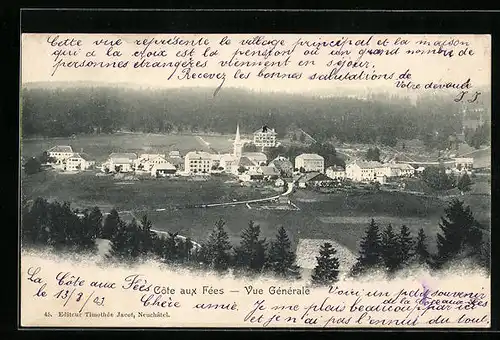 Cette vue représente le village principal et la maison
qui a la croix est la pension où un grand nombre de
personnes étrangères viennent en séjour.
Recevez les bonnes salutations de
Votre dévouée
J. J.
Côte aux Fées — Vue Générale
La Côte aux Fées
le 13/8/03
Chère amie,
Voici un petit souvenir
de la Côte aux Fées
Je me plais beaucoup par ici
et je n'ai pas l'ennui du tout.
45. Editeur Timothée Jacot, Neuchâtel.